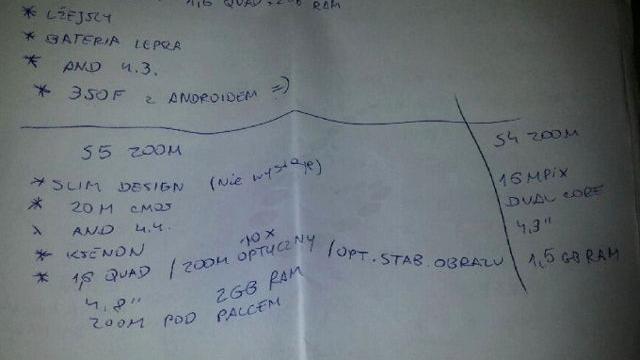 1,6 QUAD 2GB RAM
* LŻEJSZY
* BATERIA LEPSZA
* AND 4.3.
* 350F z ANDROIDEM =)
S5 ZOOM
* SLIM DESIGN (Nie wystaje)
* 20M CMOS
* AND 4.4.
* KSENON
* 1,6 QUAD / ZOOM 10X OPTYCZNY / OPT. STAB. OBRAZU
4,8" 2GB RAM
ZOOM POD PALCEM
S4 ZOOM
16MPIX
DUAL CORE
4,3"
1,5 GB RAM